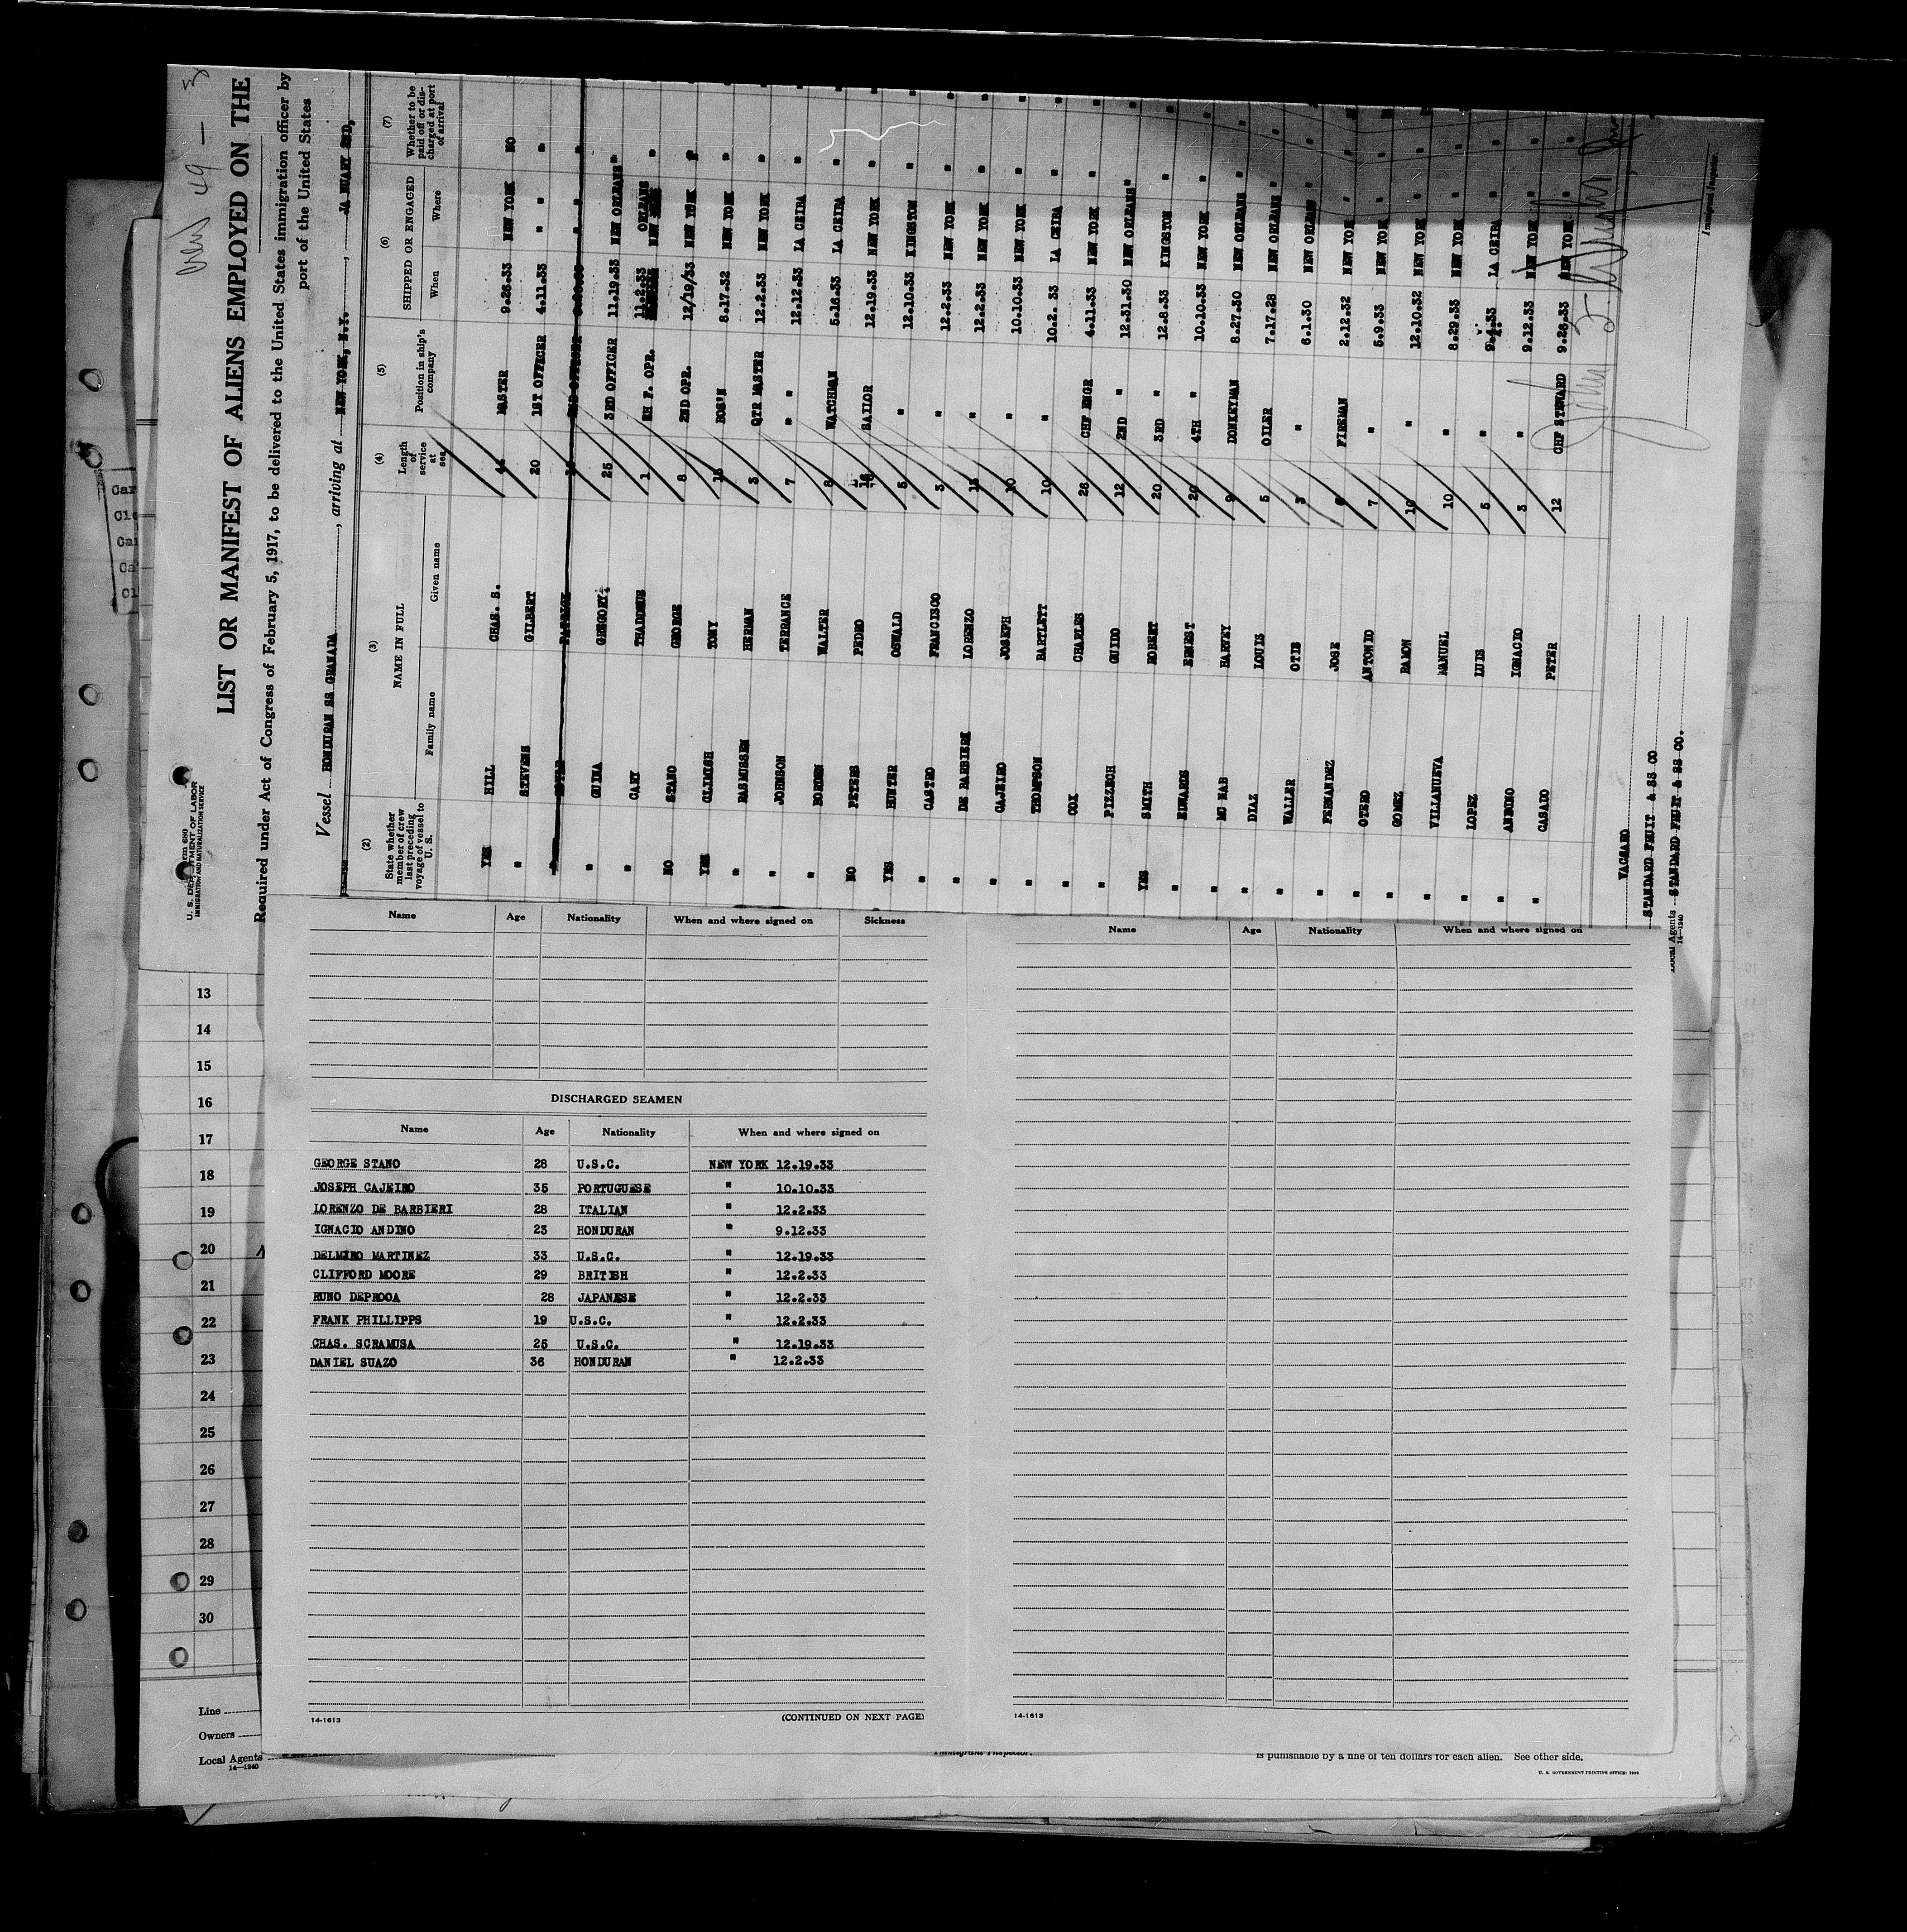 LIST OR MANIFEST OF ALIENS EMPLOYED ON THE
Required under Act of Congress of February 5, 1917, to be delivered to the United States immigration officer by
port of the United States
U. S. DEPARTMENT OF LABOR
IMMIGRATION AND NATURALIZATION SERVICE
Vessel HONDURAN SS GRANADA, arriving at NEW YORK, N.Y., JANUARY 2ND,
(2) (3) (4) (5) (6) (7)
State whether member of crew last preceding voyage of vessel to U. S. NAME IN FULL Length of service at sea Position in ship's company SHIPPED OR ENGAGED Whether to be paid off or discharged at port of arrival
Family name Given name When Where
YES HILL CHAS. S. MASTER 9.26.33 NEW YORK NO
" STEVENS GILBERT 20 1ST OFFICER 4.11.33 " " "
" GUINA GREGORY 25 3RD OFFICER 11.19.33 NEW ORLEANS "
" CARY THADDEUS 1 RH F. OPR. 11.2.33 ORLEANS "
NO STANO GEORGE 8 2ND OPR. 12/19/33 NEW YORK "
YES TONY 15 BOS'N 8.17.32 NEW YORK "
" RASMUSSEN HERMAN 3 QTR MASTER 12.2.33 NEW YORK "
" JOHNSON TERRANCE 7 " " 12.12.33 LA CEIBA "
" BORDEN WALTER 8 WATCHMAN 5.16.33 LA CEIBA "
NO PETERS PEDRO SAILOR 12.19.33 NEW YORK "
YES HUNTER OSWALD 5 " 12.10.33 KINGSTON "
" CASTRO FRANCISCO 3 " 12.2.33 NEW YORK "
" DE BARBIERI LORENZO 15 " 12.2.33 NEW YORK "
" CAJEIRO JOSEPH 10 " 10.10.33 NEW YORK "
" THOMPSON BARTLETT 10 " 10.2.33 LA CEIBA "
" COX CHARLES 26 CHF ENGR 4.11.33 NEW YORK "
" PIZZECH GUIDO 12 2ND " 12.31.30 NEW ORLEANS "
YES SMITH ROBERT 20 3RD " 12.8.33 KINGSTON "
" EDWARDS ERNEST 20 4TH " 10.10.33 NEW YORK "
" MC NAB HARVEY 9 DONKEYMAN 8.27.30 NEW ORLEANS "
" DIAZ LOUIS 5 OILER 7.17.28 NEW ORLEANS "
" WALLER OTIS 3 " 6.1.30 NEW ORLEANS "
" FERNANDEZ JOSE 6 FIREMAN 2.12.32 NEW YORK "
" OTERO ANTONIO 7 " 5.9.33 NEW YORK "
" GOMEZ RAMON 10 " 12.10.32 NEW YORK "
" VILLANUEVA MANUEL 10 " 8.29.33 NEW YORK "
" LOPEZ LUIS 5 " LA CEIBA "
" ANDINO IGNACIO 3 " 9.12.33 NEW YORK "
" CASADO PETER 12 CHF STEWARD 9.26.33 NEW YORK "
VACCARO
STANDARD FRUIT & SS CO
Local Agents STANDARD FRUIT & SS CO.
14—1240
Immigrant Inspector.
Name Age Nationality When and where signed on Sickness
DISCHARGED SEAMEN
Name Age Nationality When and where signed on
GEORGE STANO 28 U.S.C. NEW YORK 12.19.33
JOSEPH CAJEIRO 35 PORTUGUESE " 10.10.33
LORENZO DE BARBIERI 28 ITALIAN " 12.2.33
IGNACIO ANDINO 23 HONDURAN " 9.12.33
DELMIRO MARTINEZ 33 U.S.C. " 12.19.33
CLIFFORD MOORE 29 BRITISH " 12.2.33
RUNO DEPROOA 28 JAPANESE " 12.2.33
FRANK PHILLIPPS 19 U.S.C. " 12.2.33
CHAS. SCRAMUSA 25 U.S.C. " 12.19.33
DANIEL SUAZO 36 HONDURAN " 12.2.33
14-1613
(CONTINUED ON NEXT PAGE)
Name Age Nationality When and where signed on
14-1613
13
14
15
16
17
18
19
20
21
22
23
24
25
26
27
28
29
30
Line
Owners
Local Agents
14—1240
Immigrant Inspector.
is punishable by a fine of ten dollars for each alien. See other side.
U. S. GOVERNMENT PRINTING OFFICE: 1933